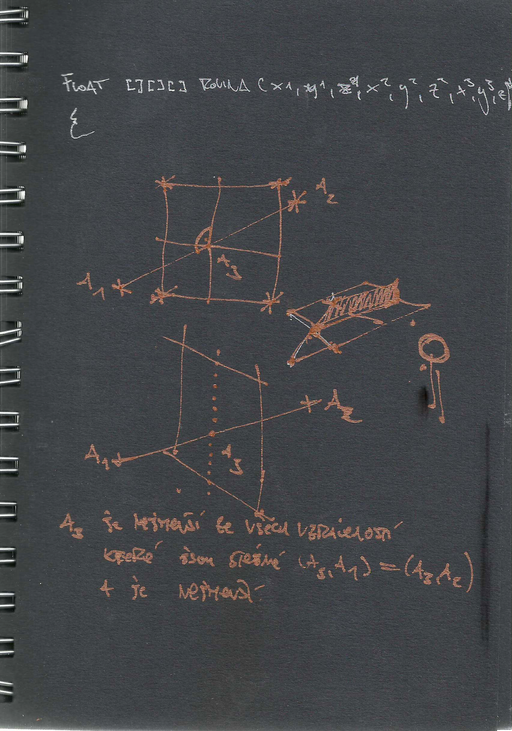 FLOAT [][][] ROVINA (x1, y1, z1, x2, y2, z2, x3, y3, z3)
{
A2
A3
A1
A2
A1
A3
A3 je nejmenší ze všech vzdáleností
které jsou stejné (A3, A1) = (A3, A2)
A je nejmenší